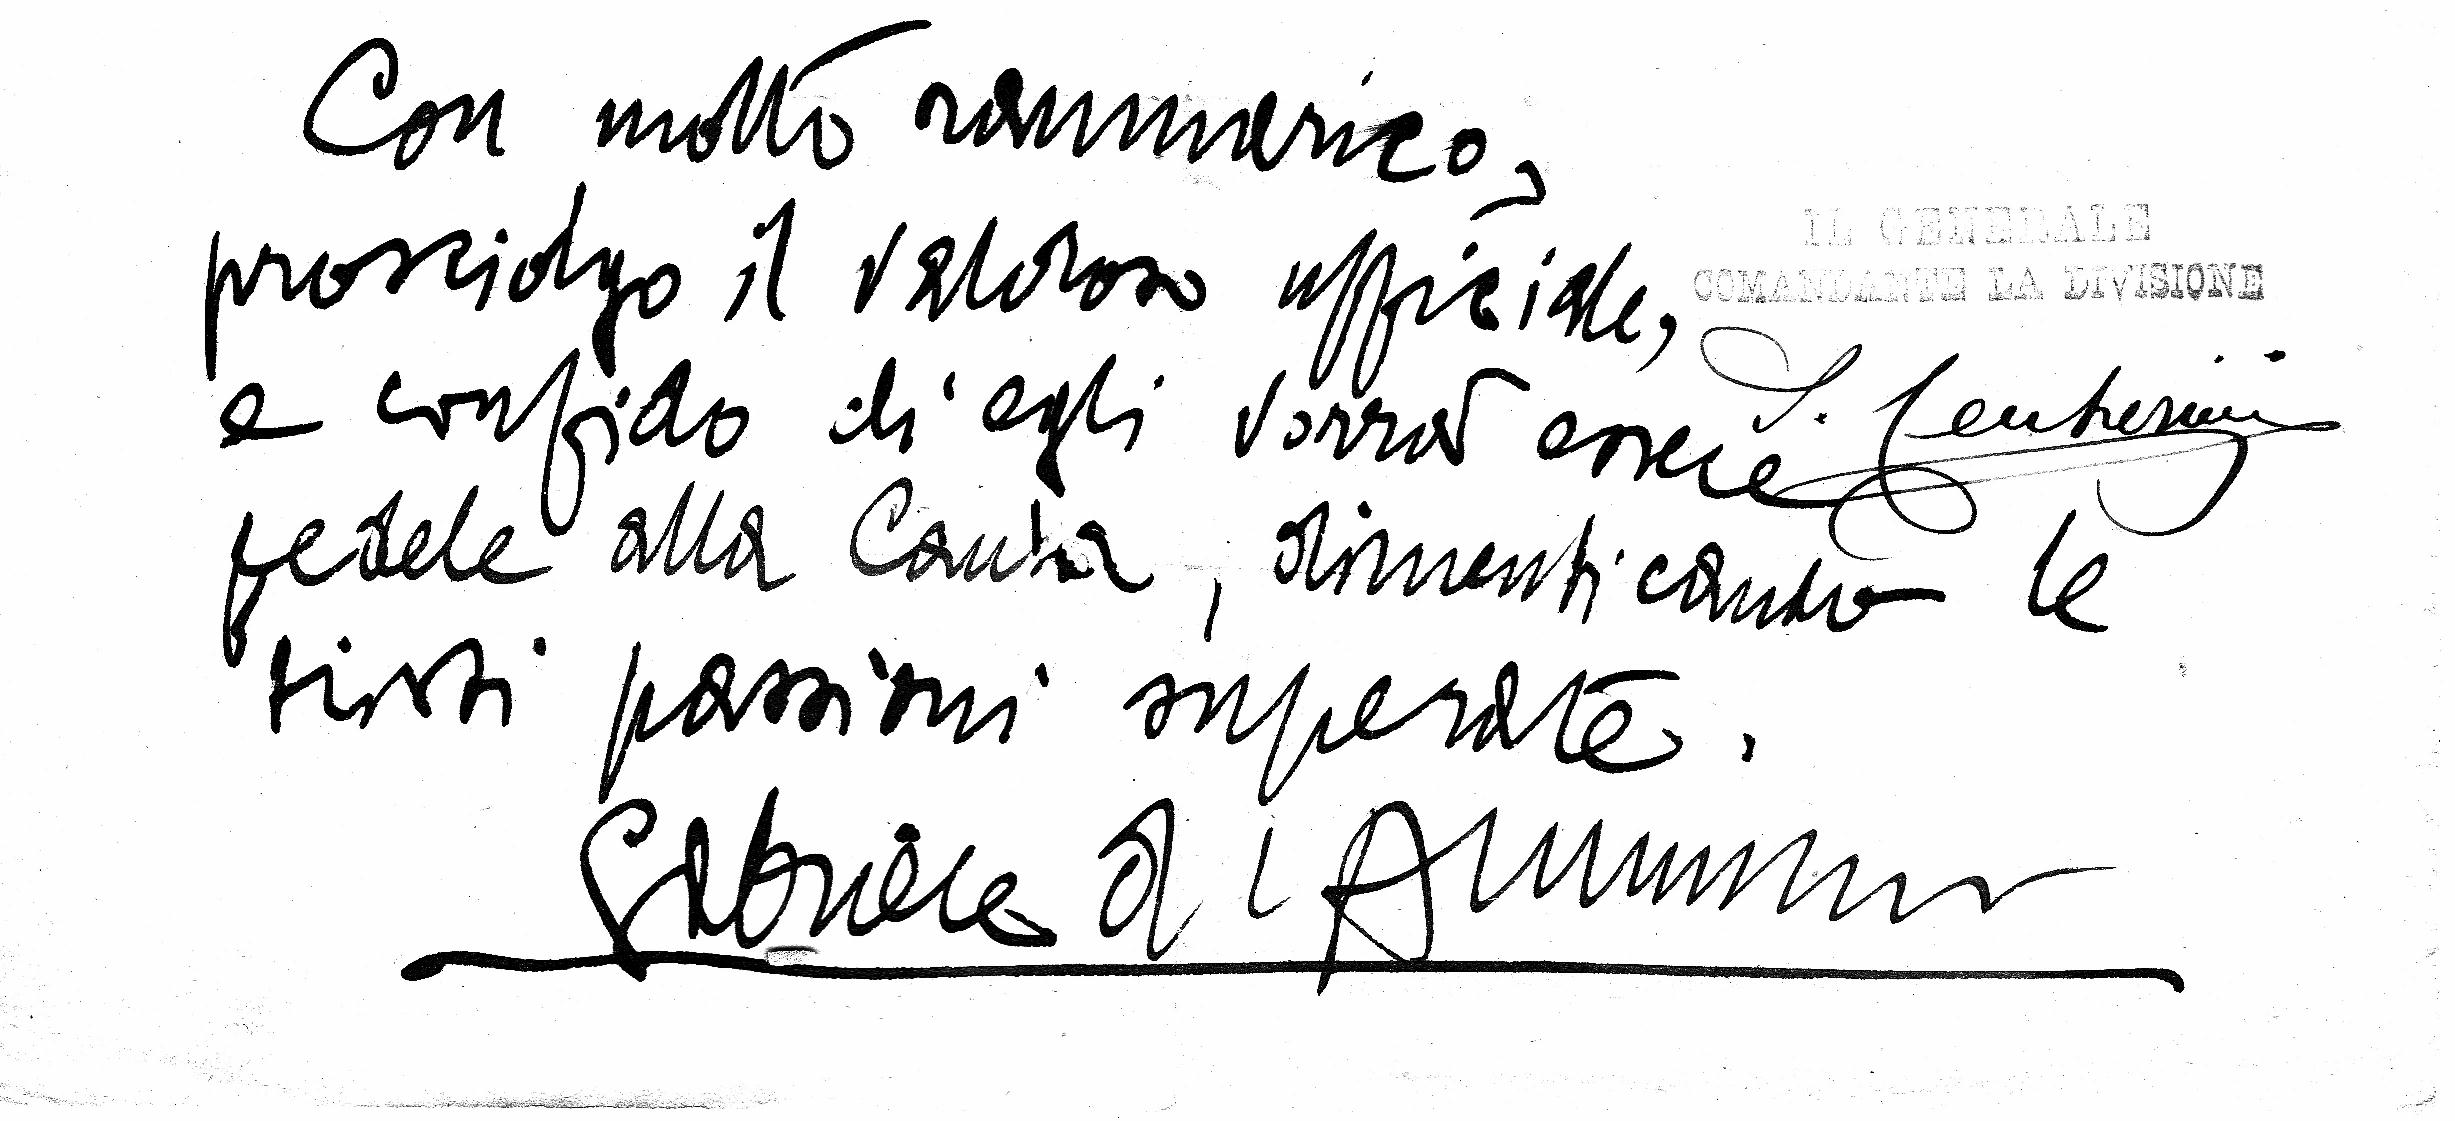 Con molto rammarico,
prosciolgo il valoroso ufficiale,
IL GENERALE
COMANDANTE LA DIVISIONE
e confido ch'egli vorrà essere
fedele alla Causa, dimenticando le
tristi passioni superate.
Gabriele d'Annunzio